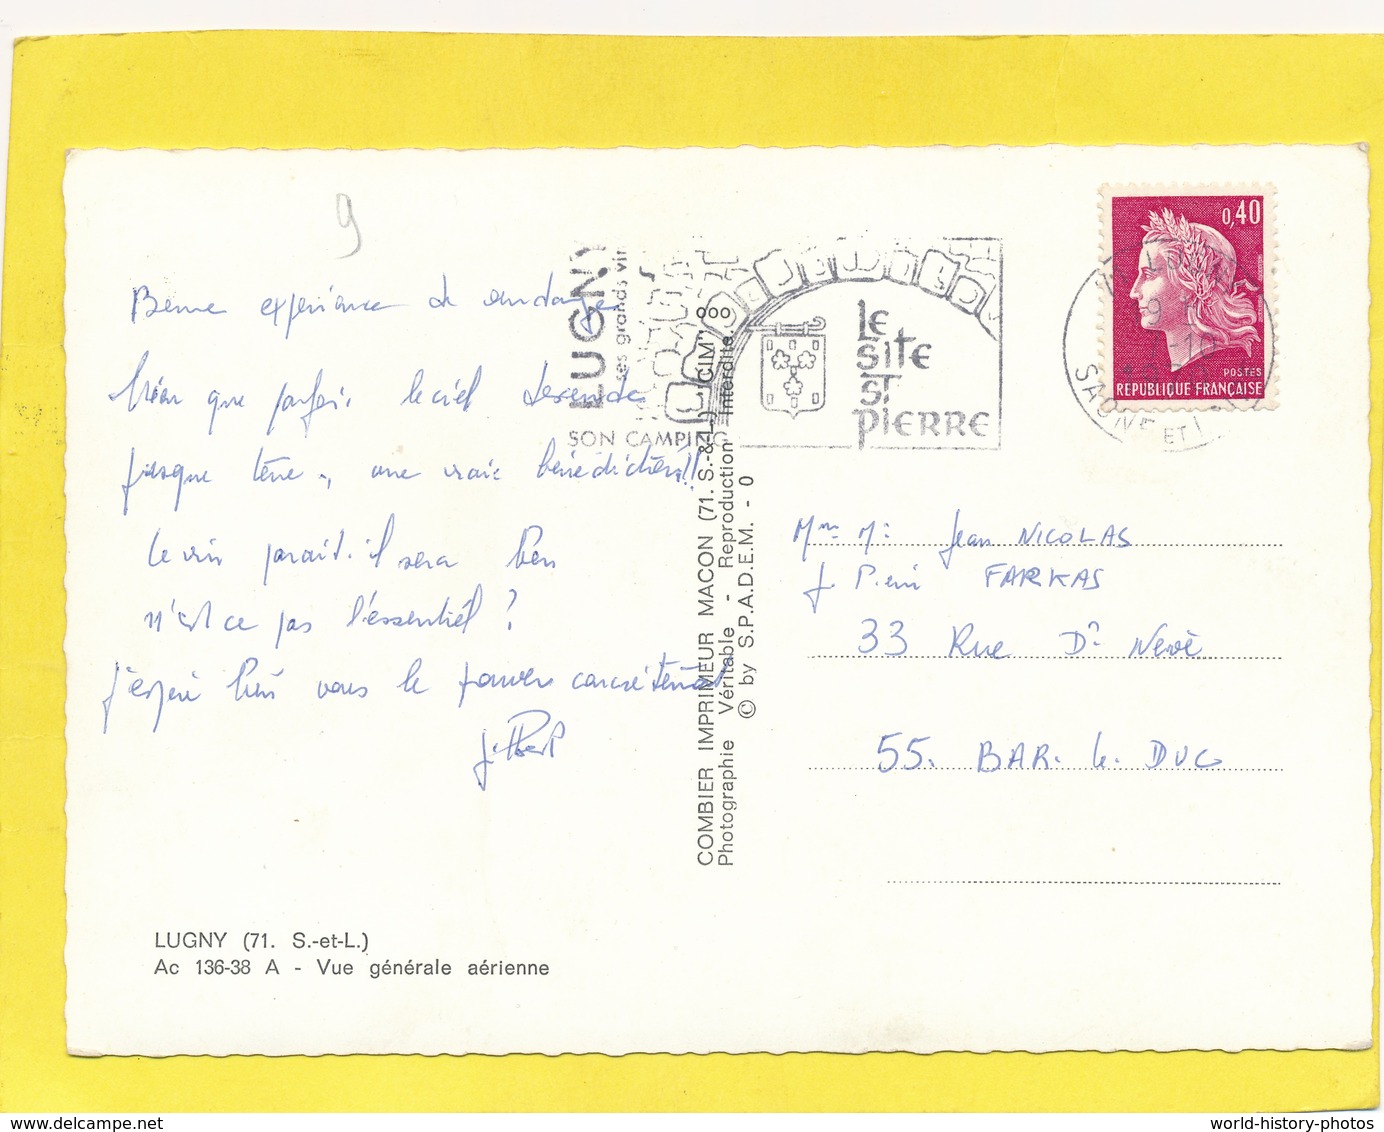 9
Bonne expérience de vendange
bien que parfois le ciel descende
jusque terre, une vraie bénédiction!!
Le vin parait-il sera bon
n'est ce pas l'essentiel ?
J'espère bien vous le
Gilbert
LUGNY (71. S.-et-L.)
Ac 136-38 A - Vue générale aérienne
LUGNY
ses grands vin
SON CAMPING
LE
SITE
ST
PIERRE
COMBIER IMPRIMEUR MACON (71. S.-&-L.) "CIM"
Photographie Véritable - Reproduction Interdite.
© by S.P.A.D.E.M. - 0
0,40
POSTES
REPUBLIQUE FRANÇAISE
SAONE ET L
Jean NICOLAS
FARKAS
33 Rue Dr Nève
55. BAR. le DUC
delcampe.net
world-history-photos